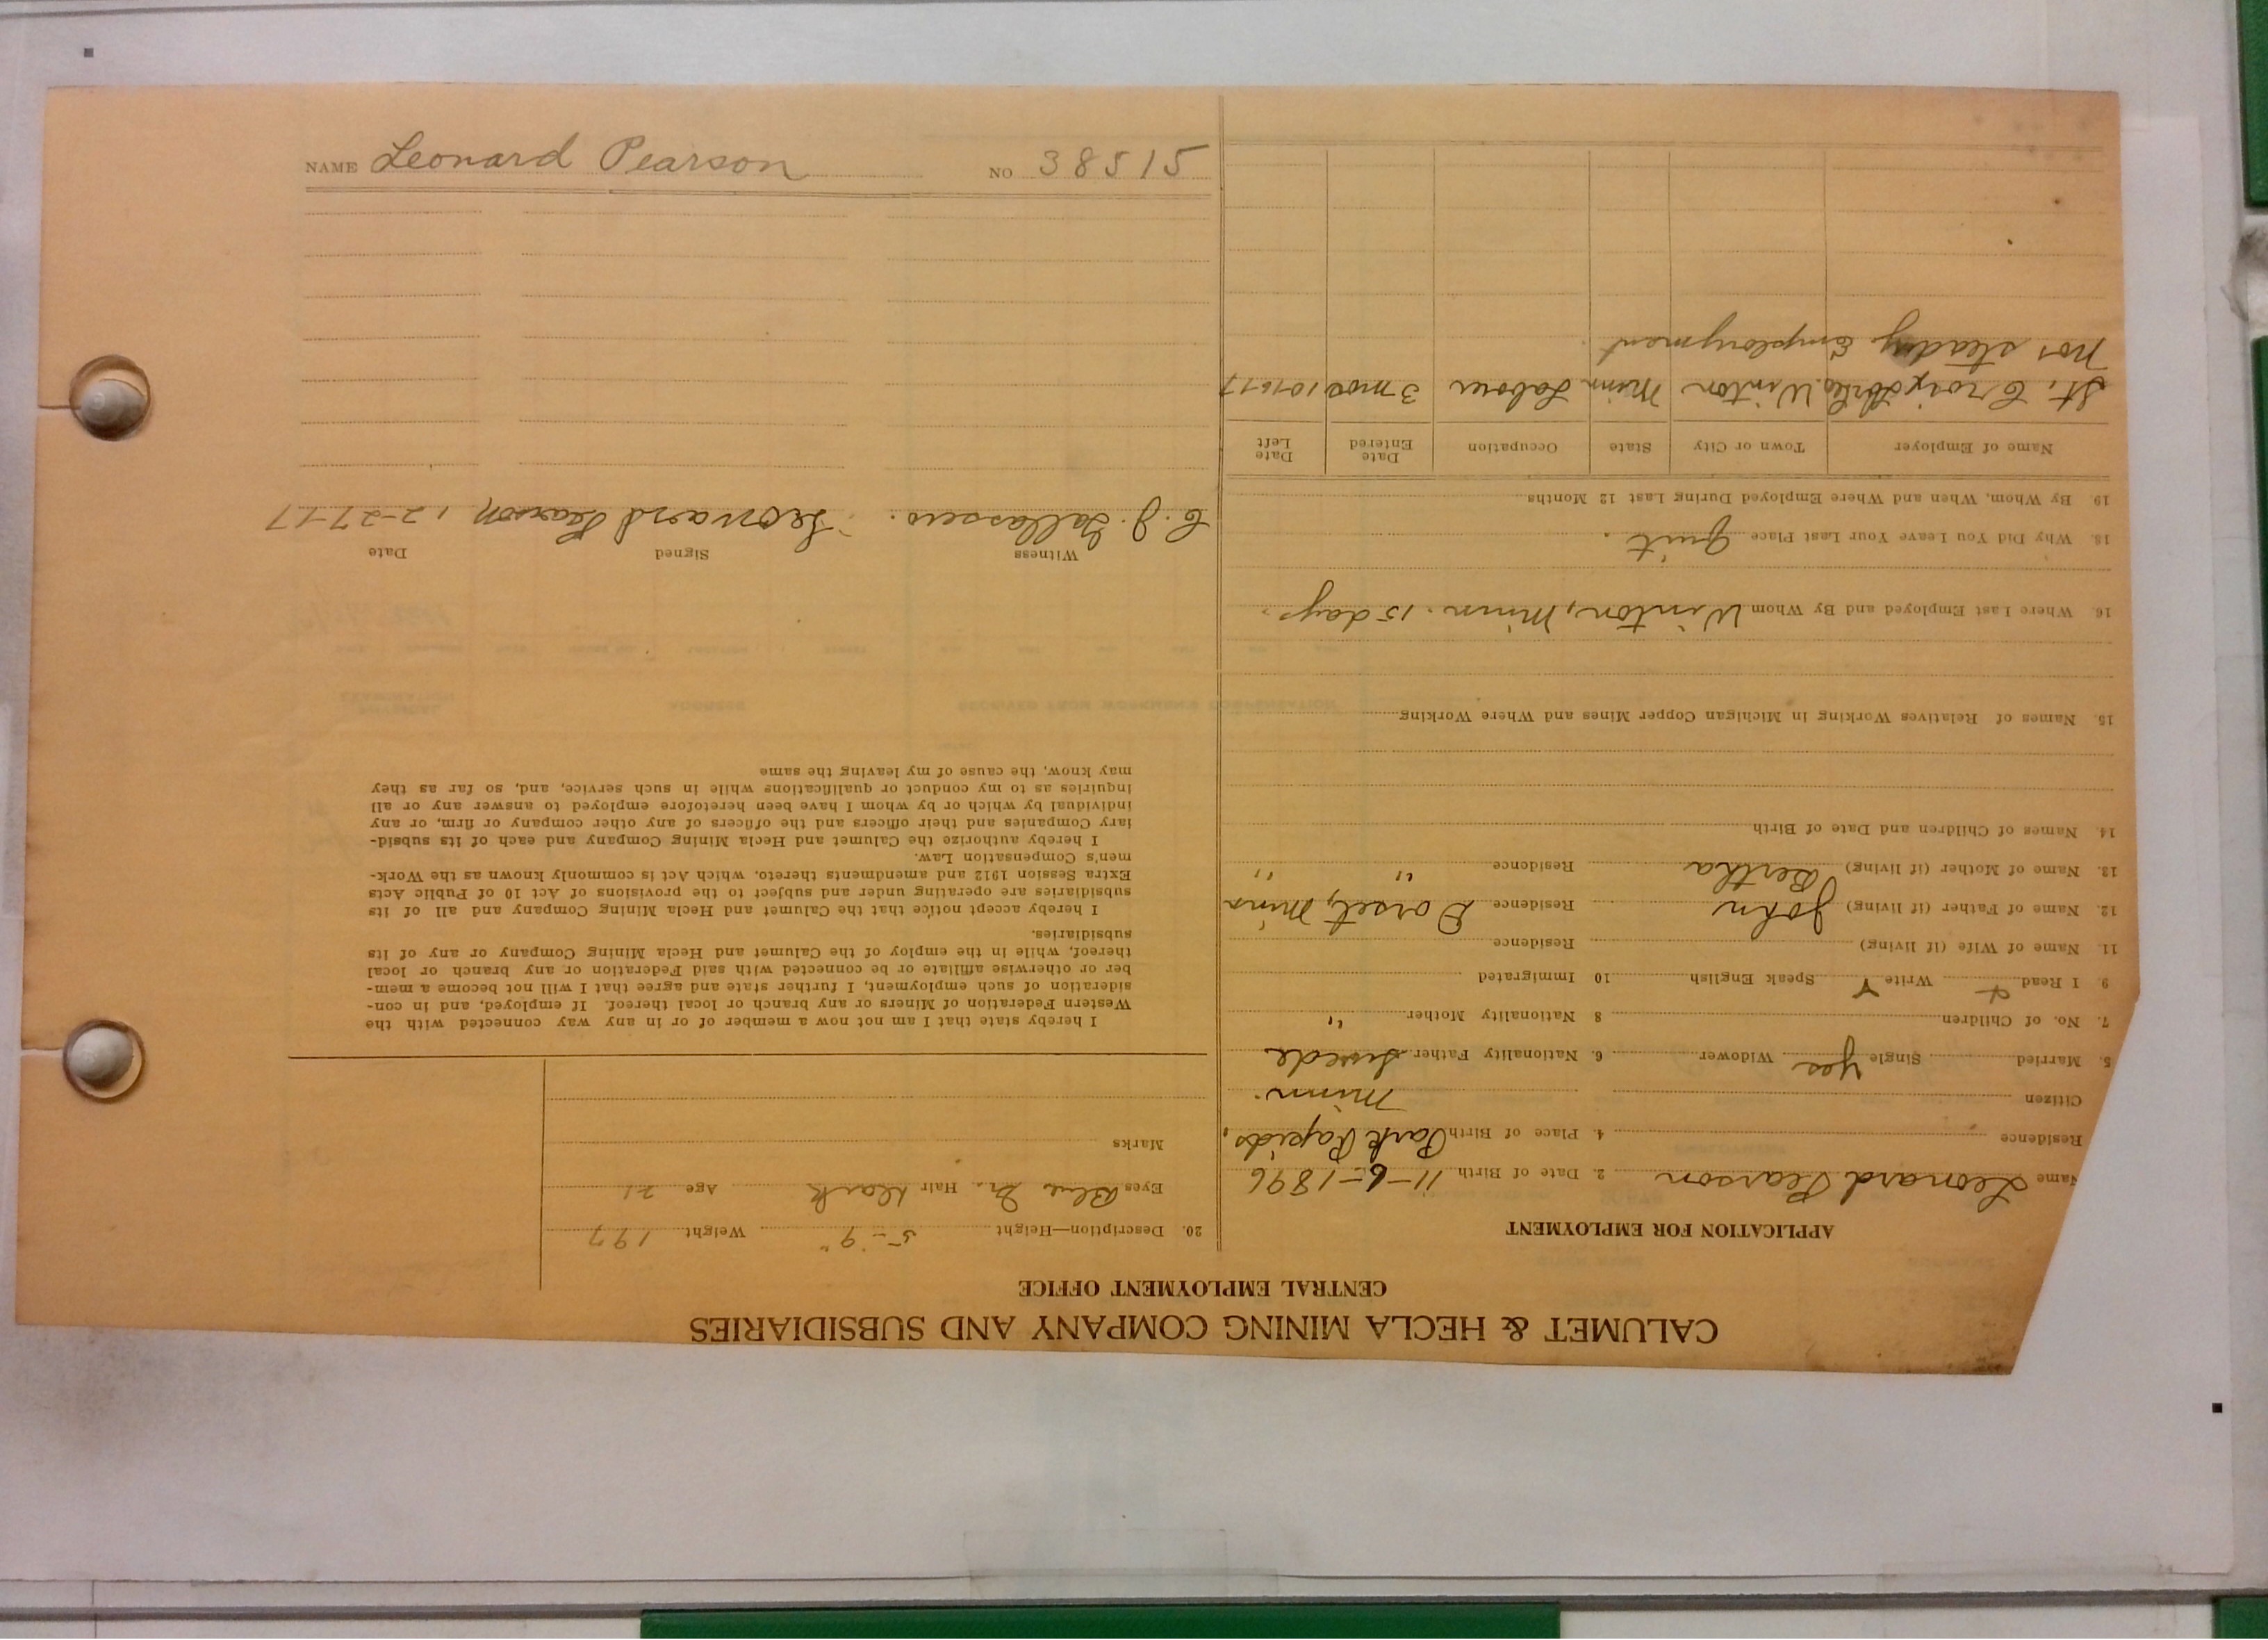 CALUMET & HECLA MINING COMPANY AND SUBSIDIARIES
CENTRAL EMPLOYMENT OFFICE
APPLICATION FOR EMPLOYMENT
Name Leonard Pearson 2. Date of Birth 11-6-1896
Residence 4. Place of Birth Park Rapids,
Citizen Minn.
5. Married Single yes Widower 6. Nationality Father Swede
7. No. of Children 8 Nationality Mother "
9. I Read Y Write Y Speak English 10 Immigrated
11. Name of Wife (if living) Residence
12. Name of Father (if living) John Residence Dorset, Minn
13. Name of Mother (if living) Bertha Residence " "
14. Names of Children and Date of Birth
15. Names of Relatives Working in Michigan Copper Mines and Where Working
16. Where Last Employed and By Whom Winton, Minn. 15 days.
18. Why Did You Leave Your Last Place quit.
19. By Whom, When and Where Employed During Last 12 Months
Name of Employer Town or City State Occupation Date Entered Date Left
St. Croix Winton Minn Labour 3 mos
Not steady Employment.
20. Description—Height 5-9" Weight 197
Eyes Blue Hair Dark Age 21
Marks
I hereby state that I am not now a member of or in any way connected with the
Western Federation of Miners or any branch or local thereof. If employed, and in con-
sideration of such employment, I further state and agree that I will not become a mem-
ber or otherwise affiliate or be connected with said Federation or any branch or local
thereof, while in the employ of the Calumet and Hecla Mining Company or any of its
subsidiaries.
I hereby accept notice that the Calumet and Hecla Mining Company and all of its
subsidiaries are operating under and subject to the provisions of Act 10 of Public Acts
Extra Session 1912 and amendments thereto, which Act is commonly known as the Work-
men's Compensation Law.
I hereby authorize the Calumet and Hecla Mining Company and each of its subsid-
iary Companies and their officers and the officers of any other company or firm, or any
individual by which or by whom I have been heretofore employed to answer any or all
inquiries as to my conduct or qualifications while in such service, and, so far as they
may know, the cause of my leaving the same
Witness Signed Date
C. J. Leonard Pearson 12-27-17
NAME Leonard Pearson NO 38515